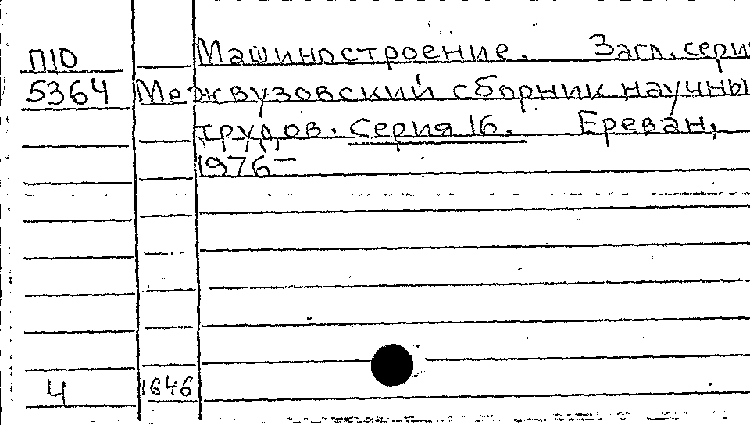 П10 Машиностроение. Загл. сери
5364 Межвузовский сборник научны
трудов. Серия 16. Ереван,
1976–
Ч 1646